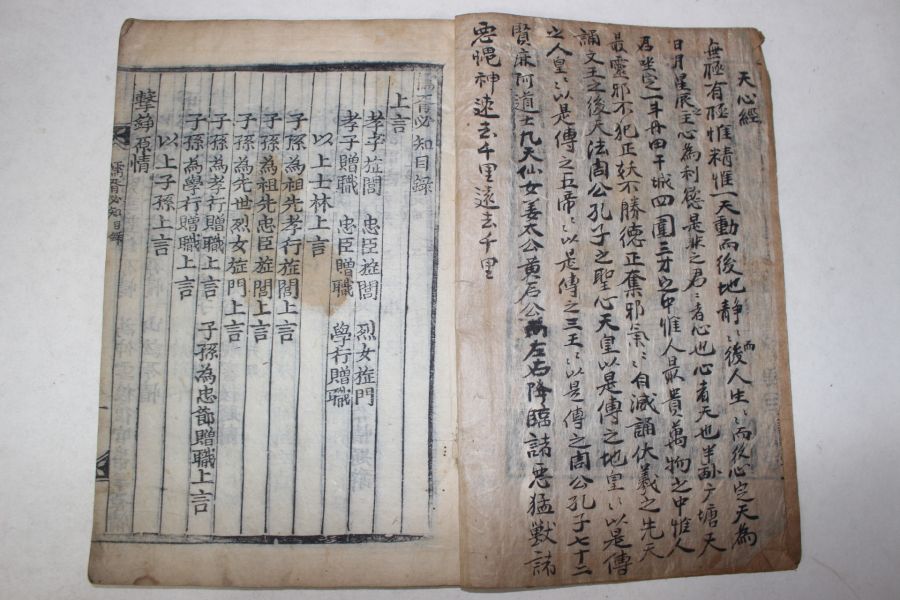 天心經
無極有極惟精惟一天動而後地靜〻而後人生〻而後心定天為
日月星辰王心為利慾是非之君〻者心也心者天也半畝方塘天
君坐定一年丹田千城四圍三才之中惟人最貴萬物之中惟人
最靈邪不犯正妖不勝德正奪邪氣〻自滅誦伏羲之先天
誦文王之後天法周公孔子之聖心天皇以是傳之地皇〻以是傳
之人皇〻以是傳之五帝〻以是傳之三王〻以是傳之周公孔子七十二
賢麻阿道士九天仙女姜太公黃石公為左右降臨諸惡猛獸諸
惡愧神速去千里遠去千里
儒胥必知目録
上言
孝子旌閭 忠臣旌閭 烈女旌門
孝子贈職 忠臣贈職 學行贈職
以上士林上言
子孫為祖先孝行旌閭上言
子孫為祖先忠臣旌閭上言
子孫為先世烈女旌門上言
子孫為孝行贈職上言 子孫為忠節贈職上言
子孫為學行贈職上言
以上子孫上言
擊錚原情
儒胥必知目録